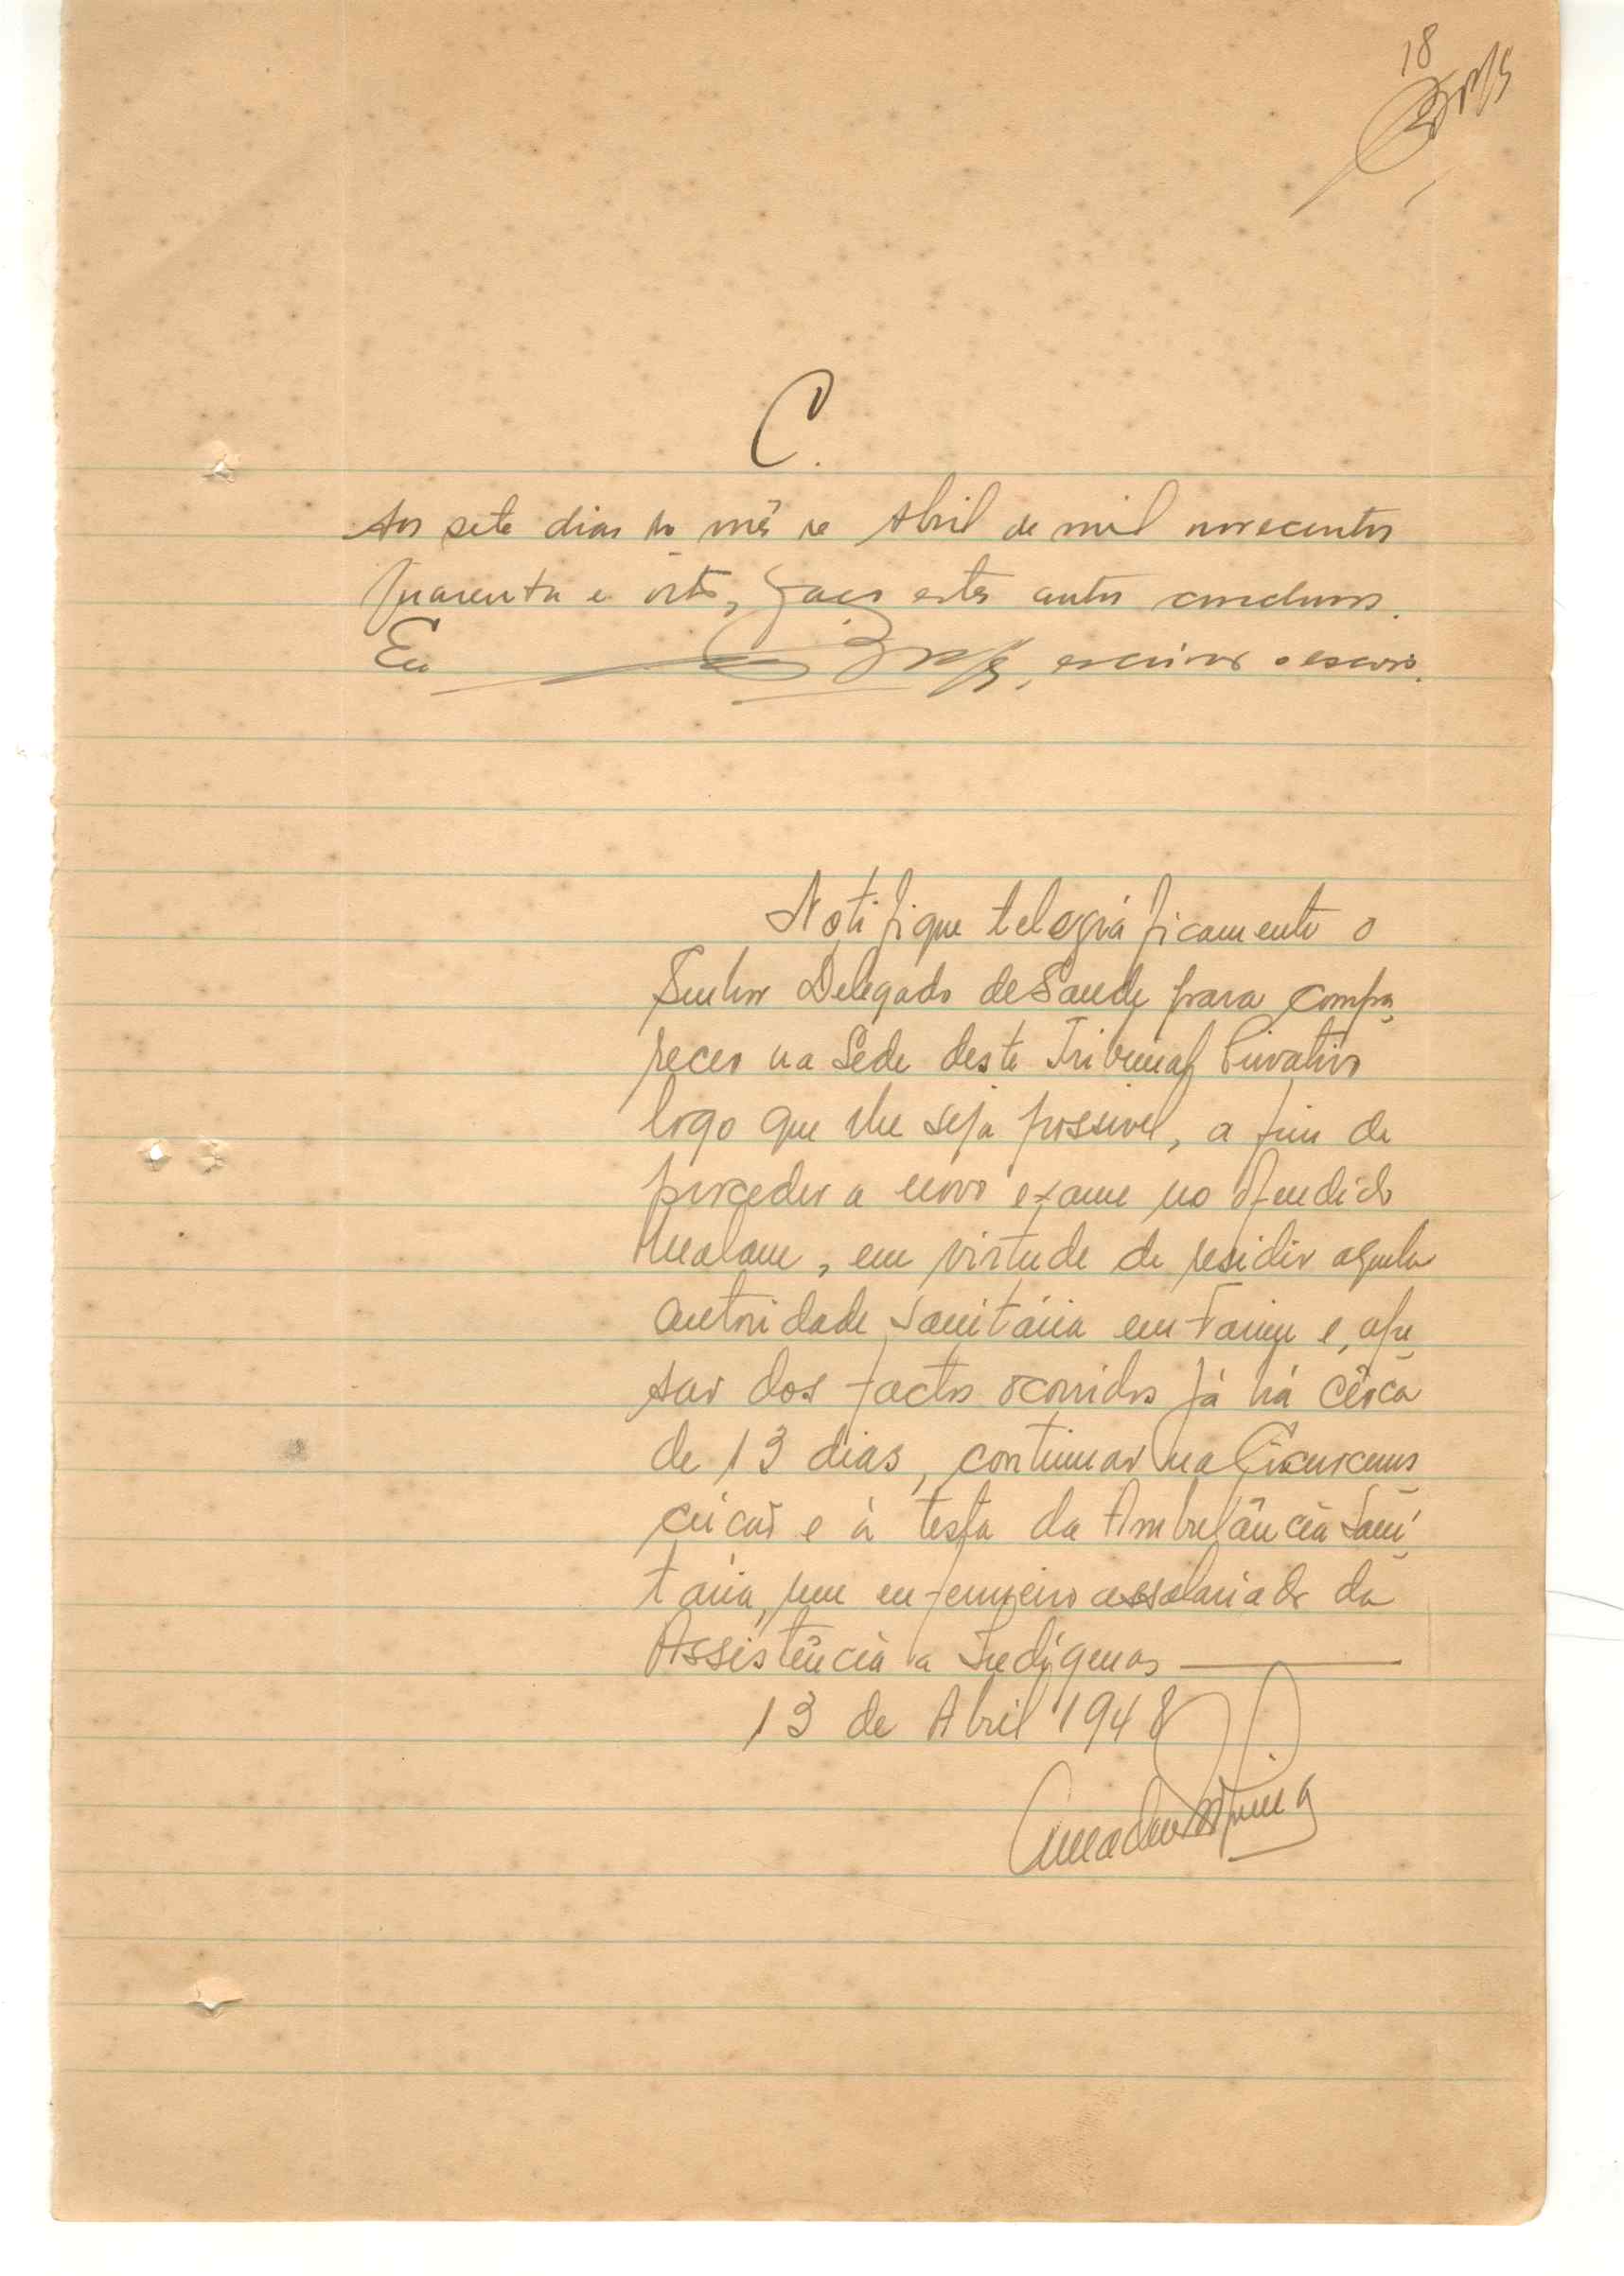 18
C.
Aos sete dias do mês de Abril de mil novecentos
quarenta e oito, faço estes autos conclusos.
Eu escrivão o escrevi.
Notifique telegráficamente o
Senhor Delegado de Saude para compa
recer na Sede deste Tribunal Privativo
logo que lhe seja possivel, a fim de
proceder a novo exame no ofendido
Malam, em virtude de residir aquela
autoridade sanitária em Farim e, ape
sar dos factos ocorridos já há cêrca
de 13 dias, continuar na Circuns
crição e à testa da Ambulância Sani
tária, um enfermeiro assalariado da
Assistência a Indígenas
13 de Abril 1948